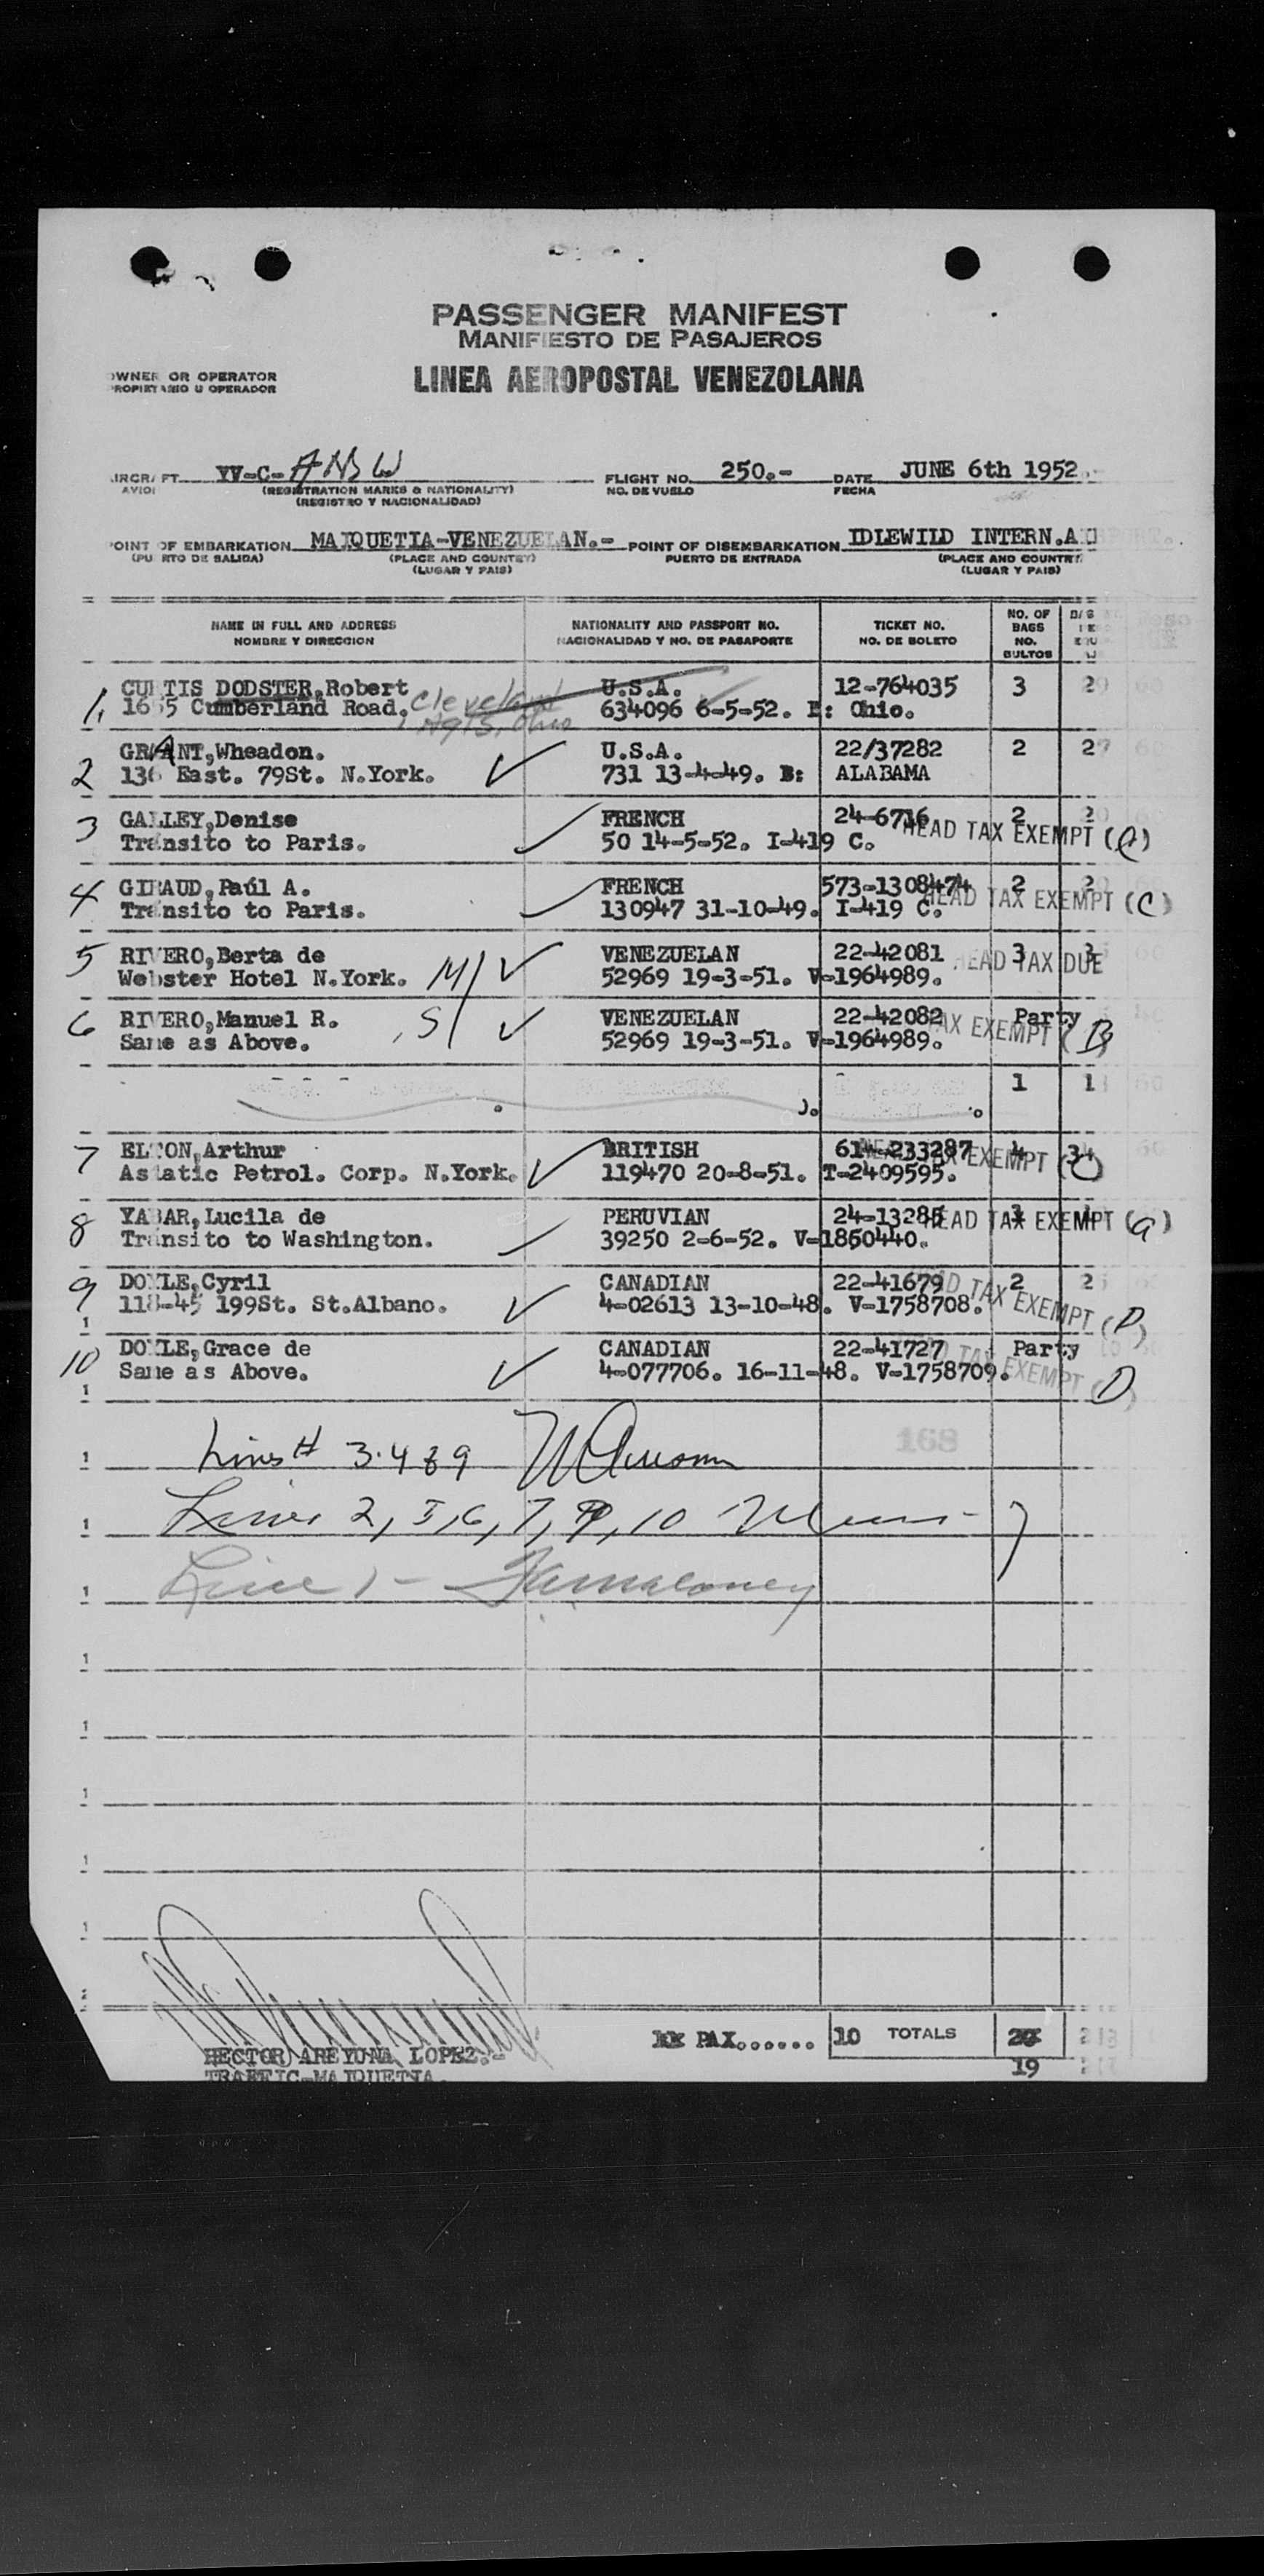 PASSENGER MANIFEST
MANIFIESTO DE PASAJEROS
OWNER OR OPERATOR
PROPIETARIO U OPERADOR
LINEA AEROPOSTAL VENEZOLANA
AIRCRAFT YV-C-ANSW FLIGHT NO. 250.- DATE JUNE 6th 1952.-
AVION (REGISTRATION MARKS & NATIONALITY) NO. DE VUELO FECHA
(REGISTRO Y NACIONALIDAD)
POINT OF EMBARKATION MAIQUETIA-VENEZUELAN.- POINT OF DISEMBARKATION IDLEWILD INTERN.
(PUERTO DE SALIDA) (PLACE AND COUNTRY) PUERTO DE ENTRADA (PLACE AND COUNTRY)
(LUGAR Y PAIS) (LUGAR Y PAIS)
NAME IN FULL AND ADDRESS NATIONALITY AND PASSPORT NO. TICKET NO. NO. OF BAGS
NOMBRE Y DIRECCION NACIONALIDAD Y NO. DE PASAPORTE NO. DE BOLETO NO. BULTOS
1. CURTIS DODSTER, Robert U.S.A. 12-764035 3 2
Cumberland Road. Cleveland Hgts. Ohio 634096 6-5-52. B: Ohio.
2 GRANT, Wheadon. U.S.A. 22/37282 2 2
136 East. 79St. N.York. 731 13-4-49. B: ALABAMA
3 GALLEY, Denise FRENCH 24-6716 2 2
Transito to Paris. 50 14-5-52. I-419 C. HEAD TAX EXEMPT
4 GIRAUD, Paúl A. FRENCH 573-1308474 2 2
Transito to Paris. 130947 31-10-49. I-419 C. HEAD TAX EXEMPT (C)
5 RIVERO, Berta de VENEZUELAN 22-42081 3 3
Webster Hotel N.York. M/ 52969 19-3-51. V-1964989. HEAD TAX DUE
6 RIVERO, Manuel R. S/ VENEZUELAN 22-42082 Party
Same as Above. 52969 19-3-51. V-1964989. TAX EXEMPT (B)
1 1
7 ELTON, Arthur BRITISH 614-233287 4 3
Asiatic Petrol. Corp. N.York. 119470 20-8-51. T-2409595. TAX EXEMPT (C)
8 YABAR, Lucila de PERUVIAN 24-13285
Transito to Washington. 39250 2-6-52. V-1850440. HEAD TAX EXEMPT (a)
9 DOYLE, Cyril CANADIAN 22-41679 2 2
118-45 199St. St.Albano. 4-02613 13-10-48. V-1758708. HEAD TAX EXEMPT (D)
10 DOYLE, Grace de CANADIAN 22-41727 Party
Same as Above. 4-077706. 16-11-48. V-1758709. TAX EXEMPT (D)
168
Lines # 3.4 8 9
Lines 2, 5, 6, 7, 9, 10
Line 1 - Maloney
PAX...... 10 TOTALS
19
HECTOR AREYUNA LOPEZ.-
TRAFFIC-MAIQUETIA.